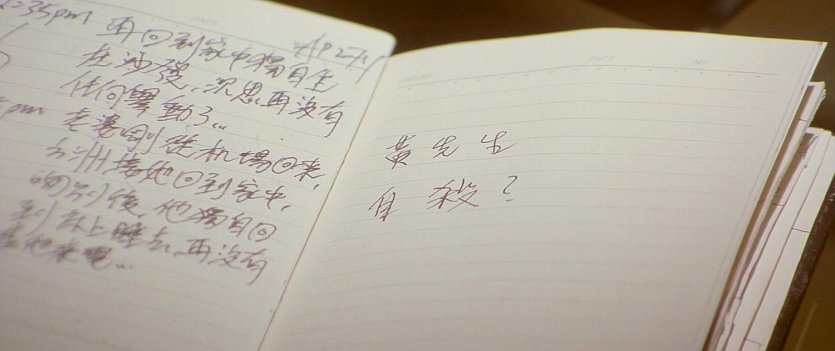 :35pm 再回到家中獨自坐
在沙發,沉思再沒有
任何舉動了...
pm 老婆剛從机場回來,
接她回到家中,
吻別後,他獨自回
到床上睡去,再沒有
黃先生
自殺?